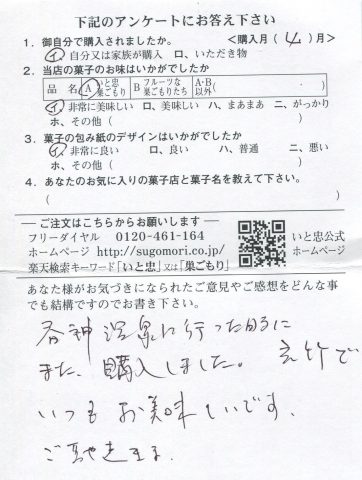 下記のアンケートにお答え下さい
1. 御自分で購入されましたか。 <購入月(4)月>
イ、自分又は家族が購入 ロ、いただき物
2. 当店の菓子のお味はいかがでしたか
品名 A いと忠巣ごもり B フルーツな巣ごもりたち A・B以外( )
イ、非常に美味しい ロ、美味しい ハ、まあまあ ニ、がっかり
ホ、その他( )
3. 菓子の包み紙のデザインはいかがでしたか
イ、非常に良い ロ、良い ハ、普通 ニ、悪い
ホ、その他( )
4. あなたのお気に入りの菓子店と菓子名を教えて下さい。
( )
―ご注文はこちらからお願いします―
フリーダイヤル 0120-461-164
ホームページ http://sugomori.co.jp/
楽天検索キーワード「いと忠」又は「巣ごもり」
いと忠公式
ホームページ
あなた様がお気づきになられたご意見やご感想をどんな事
でも結構ですのでお書き下さい。
神温泉に行った時に
また、購入しました。
いつもお美味しいです、
ご馳走さま